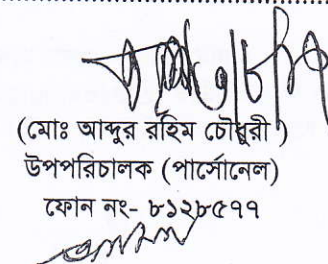 (মোঃ আব্দুর রহিম চৌধুরী)
উপপরিচালক (পার্সোনেল)
ফোন নং- ৮১২৮৫৭৭